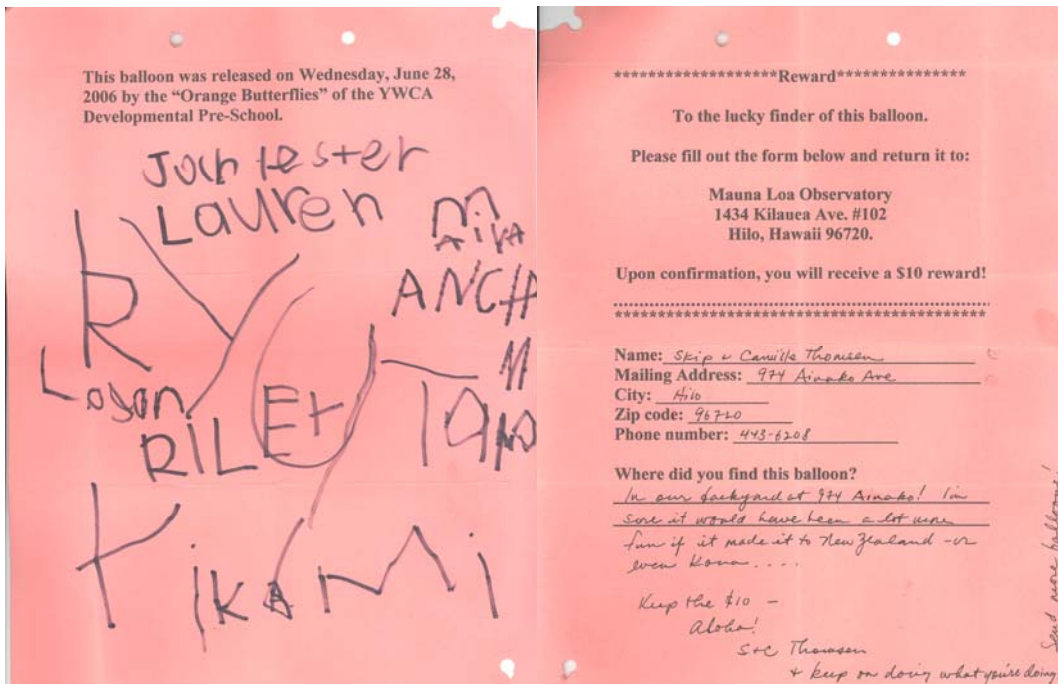 This balloon was released on Wednesday, June 28,
2006 by the “Orange Butterflies” of the YWCA
Developmental Pre-School.
Lester
Lauren
Mika
RY
ANCH
Logan
RILEY
Kikami
*******************Reward***************
To the lucky finder of this balloon.
Please fill out the form below and return it to:
Mauna Loa Observatory
1434 Kilauea Ave. #102
Hilo, Hawaii 96720.
Upon confirmation, you will receive a $10 reward!
Name: Skip + Camille Thomsen
Mailing Address: 974 Ainako Ave
City: Hilo
Zip code: 96720
Phone number: 443-6208
Where did you find this balloon?
In our backyard at 974 Ainako! I'm
sure it would have been a lot more
fun if it made it to New Zealand - or
even Kona....
Keep the $10 -
Aloha!
S+C Thomsen
+ keep on doing what you're doing
Send more balloons!